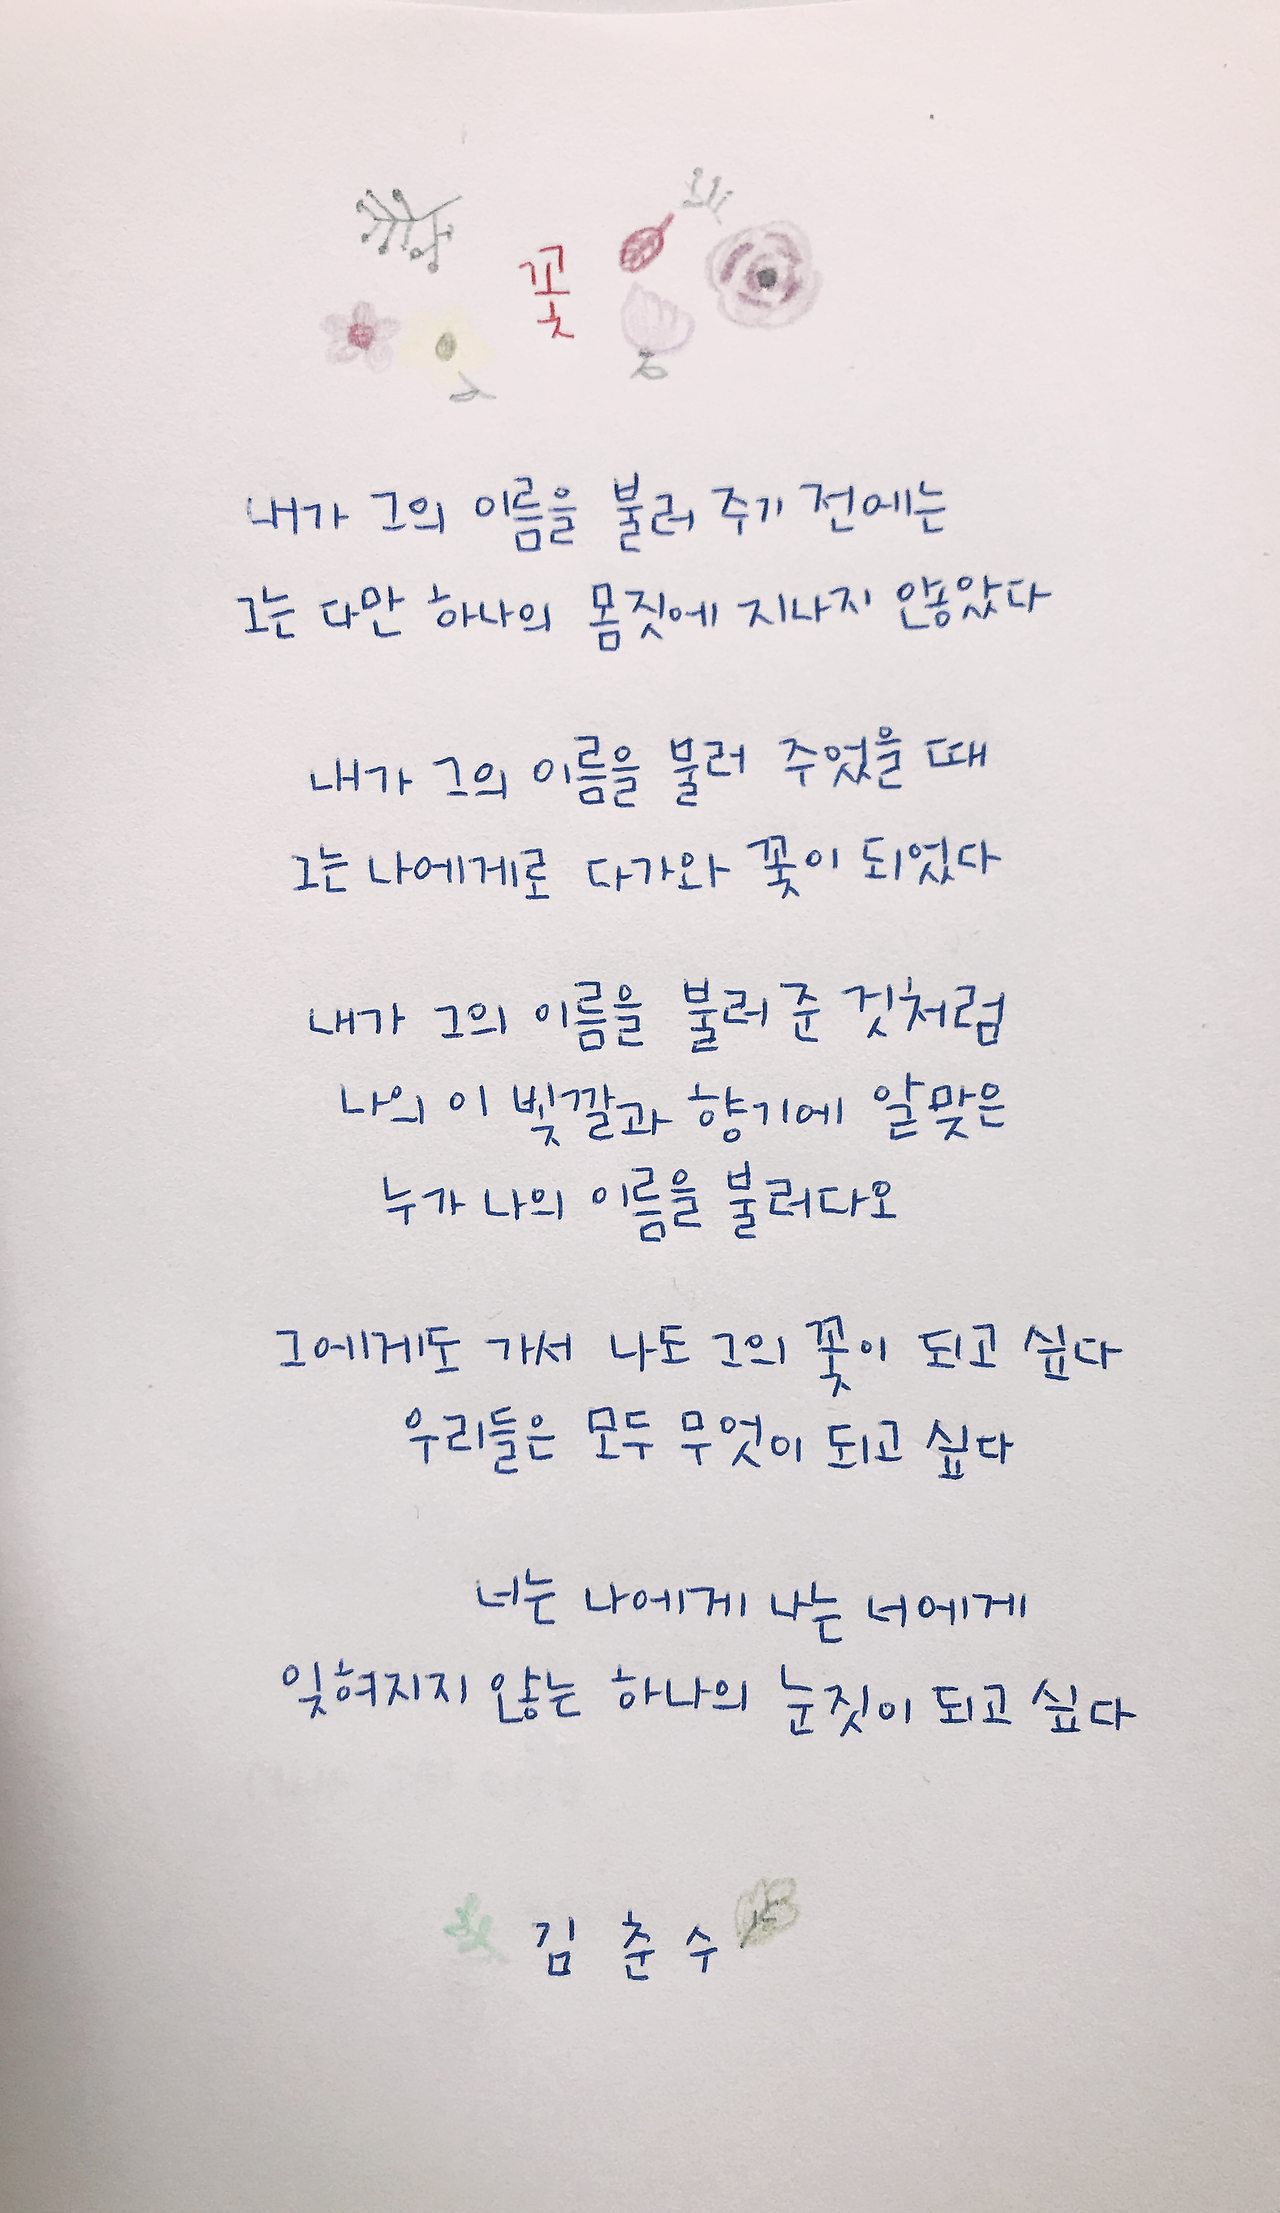 꽃
내가 그의 이름을 불러 주기 전에는
그는 다만 하나의 몸짓에 지나지 않았다
내가 그의 이름을 불러 주었을 때
그는 나에게로 다가와 꽃이 되었다
내가 그의 이름을 불러 준 것처럼
나의 이 빛깔과 향기에 알맞은
누가 나의 이름을 불러다오
그에게도 가서 나도 그의 꽃이 되고 싶다
우리들은 모두 무엇이 되고 싶다
너는 나에게 나는 너에게
잊혀지지 않는 하나의 눈짓이 되고 싶다
김 춘 수